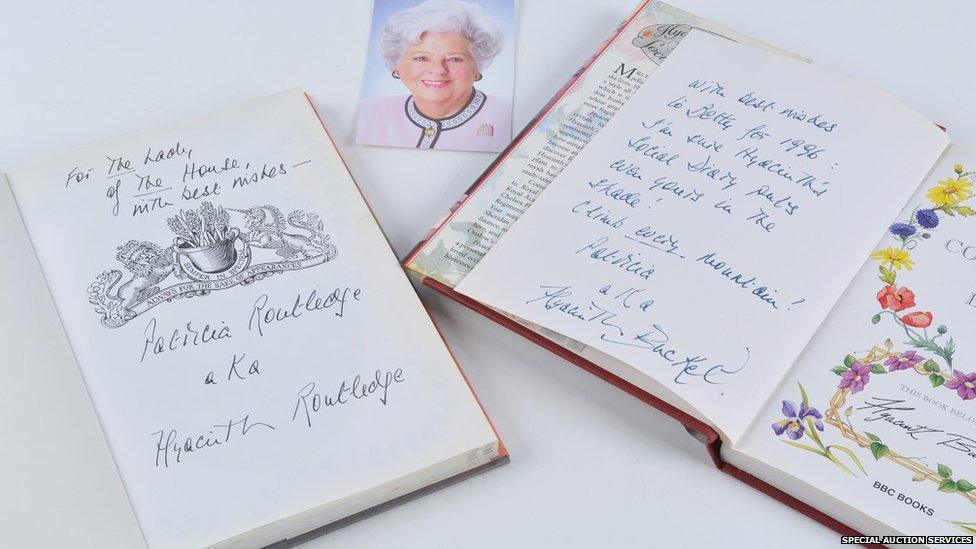 For The Lady,
of The House,
with best wishes —
SEMPER IN
ALWAYS FOR THE SAKE OF APPEARANCES
Patricia Routledge
aKa
Hyacinth Routledge
With best wishes
to Betty for 1996:
I'm sure Hyacinth's
Social Diary puts
even yours in the
shade!
Climb every mountain!
Patricia
aKa
Hyacinth Bucket
CO
THIS BOOK BELON
Hyacinth Bu
BBC BOOKS
SPECIAL AUCTION SERVICES